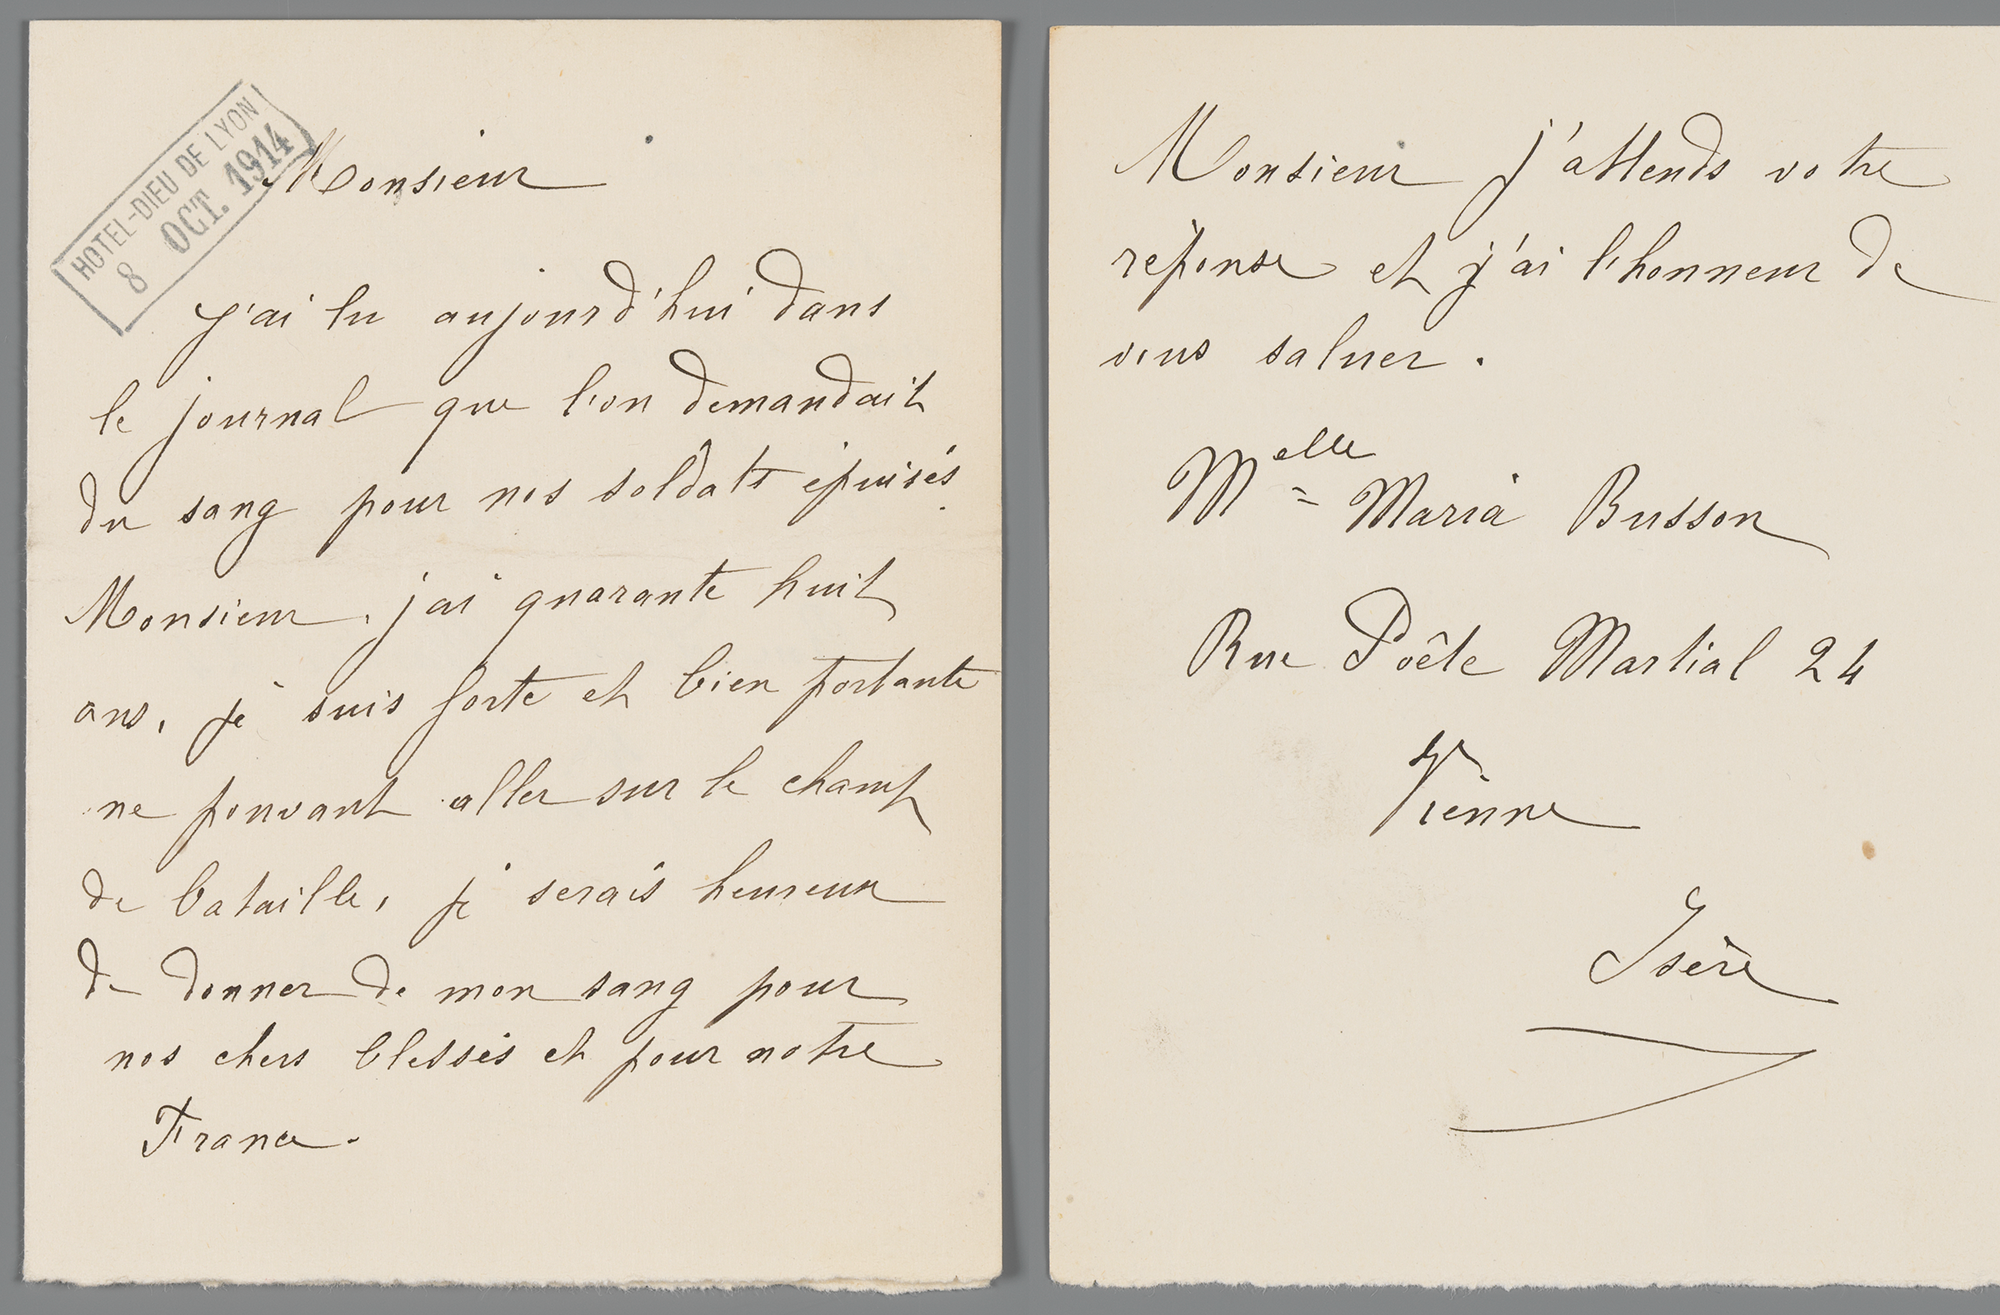 HOTEL-DIEU DE LYON
8 OCT. 1914
Monsieur
J'ai lu aujourd'hui dans
le journal que l'on demandait
du sang pour nos soldats épuisés.
Monsieur, j'ai quarante huit
ans, je suis forte et bien portante
ne pouvant aller sur le champ
de bataille, je serais heureux
de donner de mon sang pour
nos chers blessés et pour notre
France.
Monsieur j'attends votre
réponse et j'ai l'honneur de
vous saluer.
Melle Maria Busson
Rue Poête Martial 24
Vienne
Isère